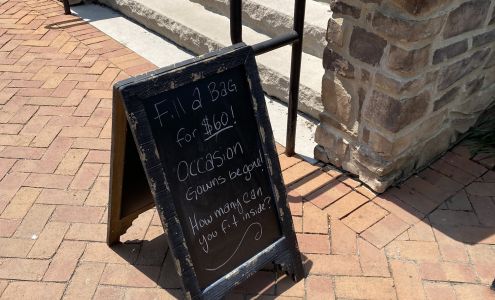 Fill a Bag
for $60!
Occasion
Gowns begone!
How many can
you fit inside?